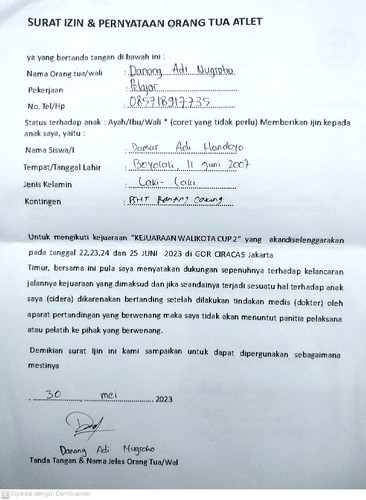 SURAT IZIN & PERNYATAAN ORANG TUA ATLET
ya yang bertanda tangan di bawah ini :
Nama Orang tua/wali : Danang Adi Nugroho
Pekerjaan : Pelajar
No. Tel/Hp : 085718917735
Status terhadap anak : Ayah/Ibu/Wali * (coret yang tidak perlu) Memberikan ijin kepada
anak saya, yaitu :
Nama Siswa/I : Damar Adi Handoyo
Tempat/Tanggal Lahir : Boyolali, 11 Juni 2007
Jenis Kelamin : Laki - Laki
Kontingen :
Untuk mengikuti kejuaraan "KEJUARAAN WALIKOTA CUP 2" yang akandiselenggarakan
pada tanggal 22,23,24 dan 25 JUNI 2023 di GOR CIRACAS Jakarta
Timur, bersama ini pula saya menyatakan dukungan sepenuhnya terhadap kelancaran
jalannya kejuaraan yang dimaksud dan jika seandainya terjadi sesuatu hal terhadap anak
saya (cidera) dikarenakan bertanding setelah dilakukan tindakan medis (dokter) oleh
aparat pertandingan yang berwenang maka saya tidak akan menuntut panitia pelaksana
atau pelatih ke pihak yang berwenang.
Demikian surat Ijin ini kami sampaikan untuk dapat dipergunakan sebagaimana
mestinya
30 mei 2023
Danang Adi Nugroho
Tanda Tangan & Nama Jelas Orang Tua/Wal
Dipindai dengan CamScanner